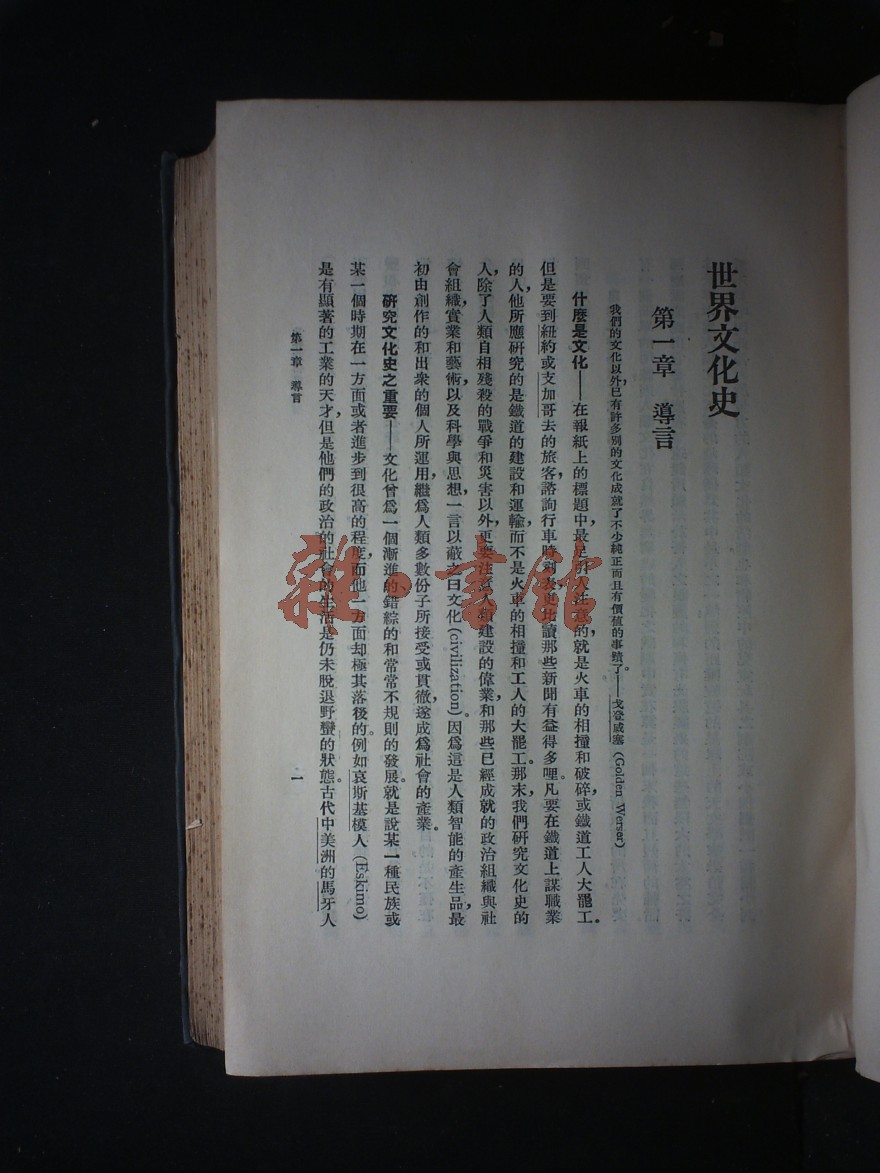 世界文化史
第一章 導言
我們的文化以外,已有許多別的文化成就了不少純正而且有價值的事蹟了。——戈登威塞 (Golden Werser)
什麼是文化——在報紙上的標題中,最足引人注意的,就是火車的相撞和破碎,或鐵道工人大罷工。
但是要到紐約或支加哥去的旅客,諮詢行車時刻表,更比讀那些新聞有益得多哩。凡要在鐵道上謀職業
的人,他所應研究的是鐵道的建設和運輸,而不是火車的相撞和工人的大罷工。那末,我們研究文化史的
人,除了人類自相殘殺的戰爭和災害以外,更要注意人類建設的偉業和那些已經成就的政治組織與社
會組織,實業和藝術,以及科學與思想,一言以蔽之曰文化(civilization)。因爲這是人類智能的產生品,最
初由創作的和出衆的個人所運用,繼爲人類多數份子所接受或貫徹,遂成爲社會的產業。
研究文化史之重要——文化曾爲一個漸進的錯綜的和常常不規則的發展。就是說某一種民族或
某一個時期在一方面或者進步到很高的程度,而他一方面却極其落後的。例如哀斯基模人(Eskimo)
是有顯著的工業的天才,但是他們的政治的社會的生活是仍未脫退野蠻的狀態。古代中美洲的馬牙人
第一章 導言
一
雜·書館